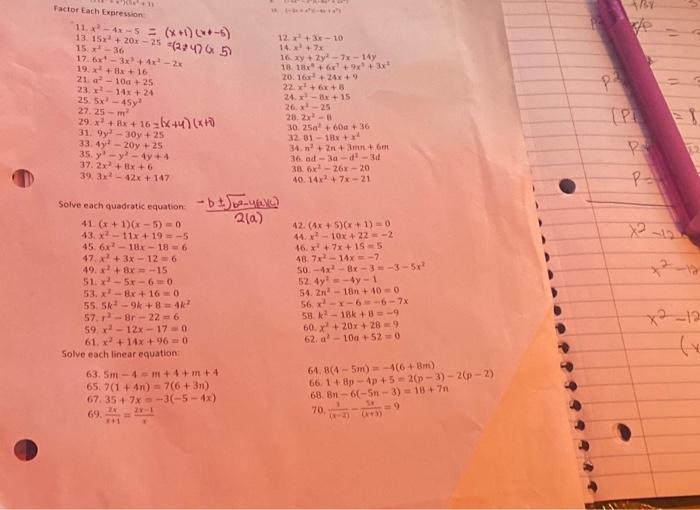 Factor Each Expression:
11. x² − 4x − 5 = (x+1)(x+-5)
13. 15x² + 20x − 25 =(2x4)(x 5)
15. x² − 36
17. 6x⁴ − 3x³ + 4x² − 2x
19. x² + 8x + 16
21. a² − 10a + 25
23. x² − 14x + 24
25. 5x² − 45y²
27. 25 − m²
29. x² + 8x + 16 =(x+4)(x+4)
31. 9y² − 30y + 25
33. 4y² − 20y + 25
35. y³ − y² − 4y + 4
37. 2x² + 8x + 6
39. 3x² − 42x + 147
12. x² + 3x − 10
14. x³ + 7x
16. xy + 2y² − 7x − 14y
18. 18x⁶ + 6x⁷ + 9x⁵ + 3x²
20. 16x² + 24x + 9
22. x² + 6x + 8
24. x² − 8x + 15
26. x² − 25
28. 2x² − 8
30. 25a² + 60a + 36
32. 81 − 18x + x²
34. n² + 2n + 3mn + 6m
36. ad − 3a − d² − 3d
38. 6x² − 26x − 20
40. 14x² + 7x − 21
Solve each quadratic equation:
-b ± √b²-4(a)(c)
2(a)
41. (x + 1)(x − 5) = 0
43. x² − 11x + 19 = −5
45. 6x² − 18x − 18 = 6
47. x² + 3x − 12 = 6
49. x² + 8x = −15
51. x² − 5x − 6 = 0
53. x² − 8x + 16 = 0
55. 5k² − 9k + 8 = 4k²
57. r² − 8r − 22 = 6
59. x² − 12x − 17 = 0
61. x² + 14x + 96 = 0
42. (4x + 5)(x + 1) = 0
44. x² − 10x + 22 = −2
46. x² + 7x + 15 = 5
48. 7x² − 14x = −7
50. −4x² − 8x − 3 = −3 − 5x²
52. 4y² = −4y − 1
54. 2n² − 18n + 40 = 0
56. x² − x − 6 = −6 − 7x
58. k² − 18k + 8 = −9
60. x² + 20x + 28 = 9
62. a² − 10a + 52 = 0
Solve each linear equation:
63. 5m − 4 = m + 4 + m + 4
65. 7(1 + 4n) = 7(6 + 3n)
67. 35 + 7x = −3(−5 − 4x)
69. 2x/x+1 = 2x−1/x
64. 8(4 − 5m) = −4(6 + 8m)
66. 1 + 8p − 4p + 5 = 2(p − 3) − 2(p − 2)
68. 8n − 6(−5n − 3) = 18 + 7n
70. 3/(x−2) − 5x/(x+3) = 9
x²-12
x²-12
x²-12